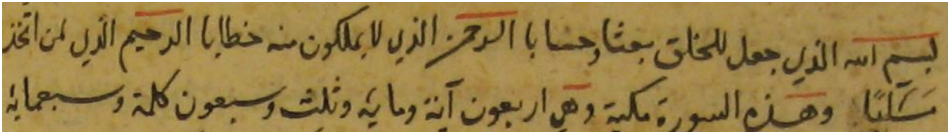 بسم الله الذي جعل للخلق بعثا وحسابا الرحمن الذي لا يملكون منه خطابا الرحيم الذي لمن اتخذ
مسكنا وهذه السورة مكية وهي اربعون آية وماية وثلث وسبعون كلمة وسبعماية